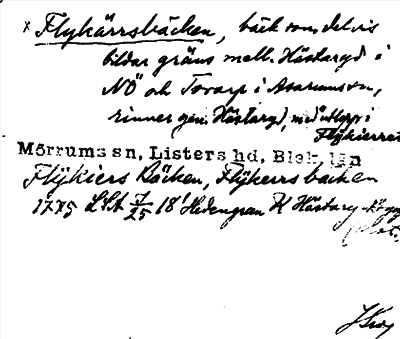 x Flykärrsbäcken, bäck som delvis
bildar gräns mell. Hästaryd i
NÖ och Torarp i Asarums sn,
rinner gen. Hästaryd, med utlopp i
Flykierret
Mörrums sn, Listers hd, Blek. län
Flÿkiers Bäcken, Flÿkerrs backen
1775 LSA 18' Hedengran K Hästary